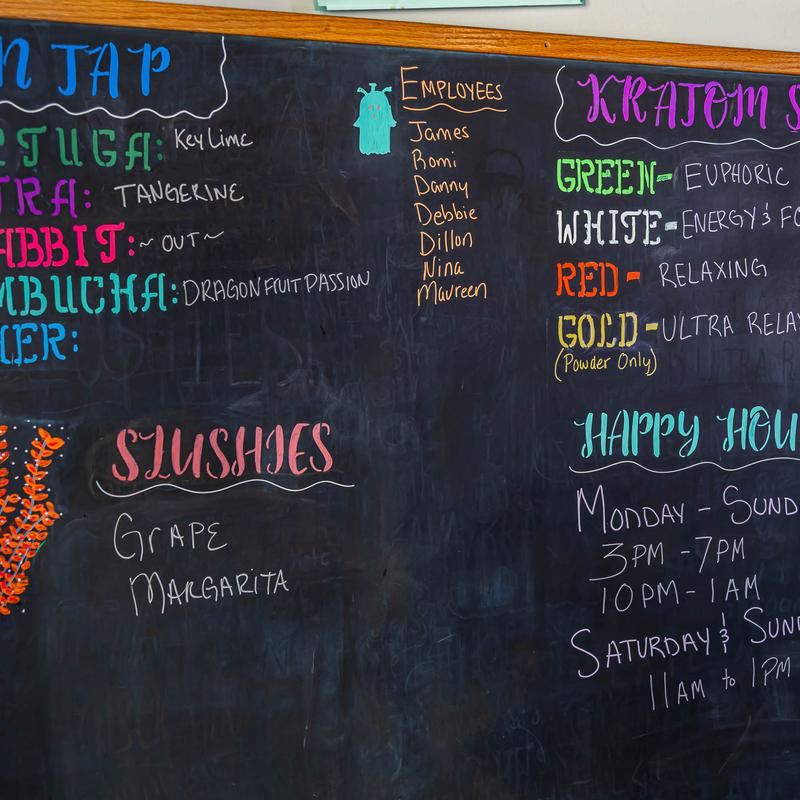 N TAP
TUGA: Key Lime
TRA: TANGERINE
ABBIT: ~ OUT ~
MBUCHA: DRAGONFRUIT PASSION
ER:
SLUSHIES
GRAPE
MARGARITA
EMPLOYEES
James
Romi
Danny
Debbie
Dillon
Nina
Maureen
KRATOM S
GREEN- EUPHORIC
WHITE- ENERGY & FO
RED- RELAXING
GOLD- ULTRA RELAX
(Powder Only)
HAPPY HOU
MONDAY - SUND
3PM - 7PM
10PM - 1AM
SATURDAY & SUN
11AM to 1PM